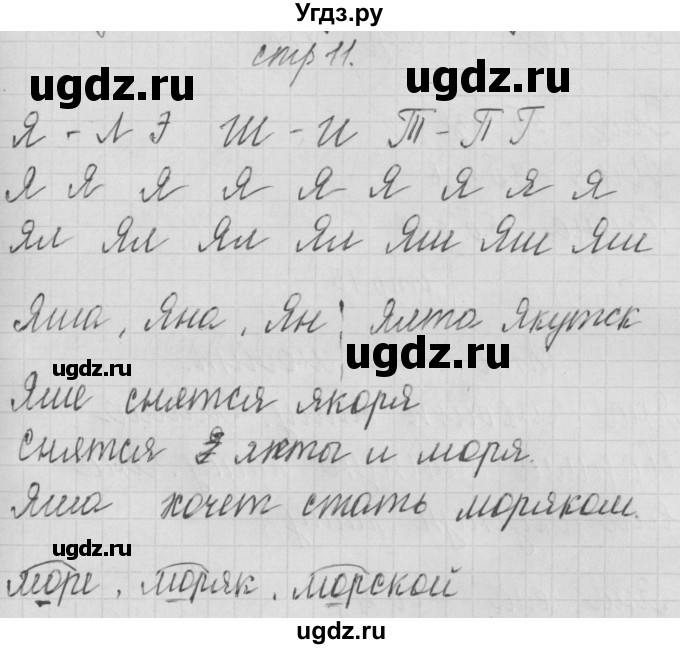 Угдз.ру
стр 11.
ugdz.ru ugdz.ru
Я - Л Э Ш - И Т - П Г
Я Я Я Я Я Я Я Я Я
Ял Ял Ял Ял Яш Яш Яш
Яша, Яна, Ян Ялта Якутск
ugdz.ru
ugdz.ru
Яше снятся якоря
Снятся яхты и моря.
Яша хочет стать моряком.
ugdz.ru
море, моряк, морской
ugdz.ru